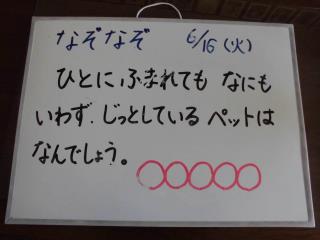 なぞなぞ 6/16(火)
ひとに ふまれても なにも
いわず、じっとしている ペットは
なんでしょう。
○○○○○